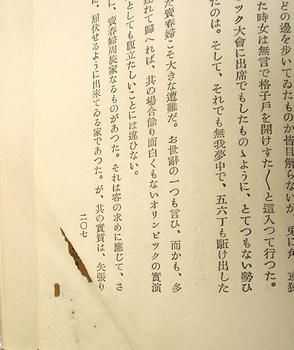 どの邊を步いてゐたものか皆目解らないが、兎に角、
た時女は無言で格子戶を開けすた〱と這入つて行つた。
ツク大會に出席でもしたものゝように、とてつもない勢ひ
たのは。そして、それでも無我夢中で、五六丁も駈け出した
だ賣春婦こそ大きな遭難だ。お世辭の一つも言ひ、而かも、多
連れて歸へれば、其の場合餘り面白くもないオリンピツクの實演
としても腹立たしいことには違ひない。
に、賣春婦周旋家なるものがあつた。それは客の求めに應じて、さ
に、屈伏せるように出來てゐる家であつた。が、其の實質は、矢張り
二〇七